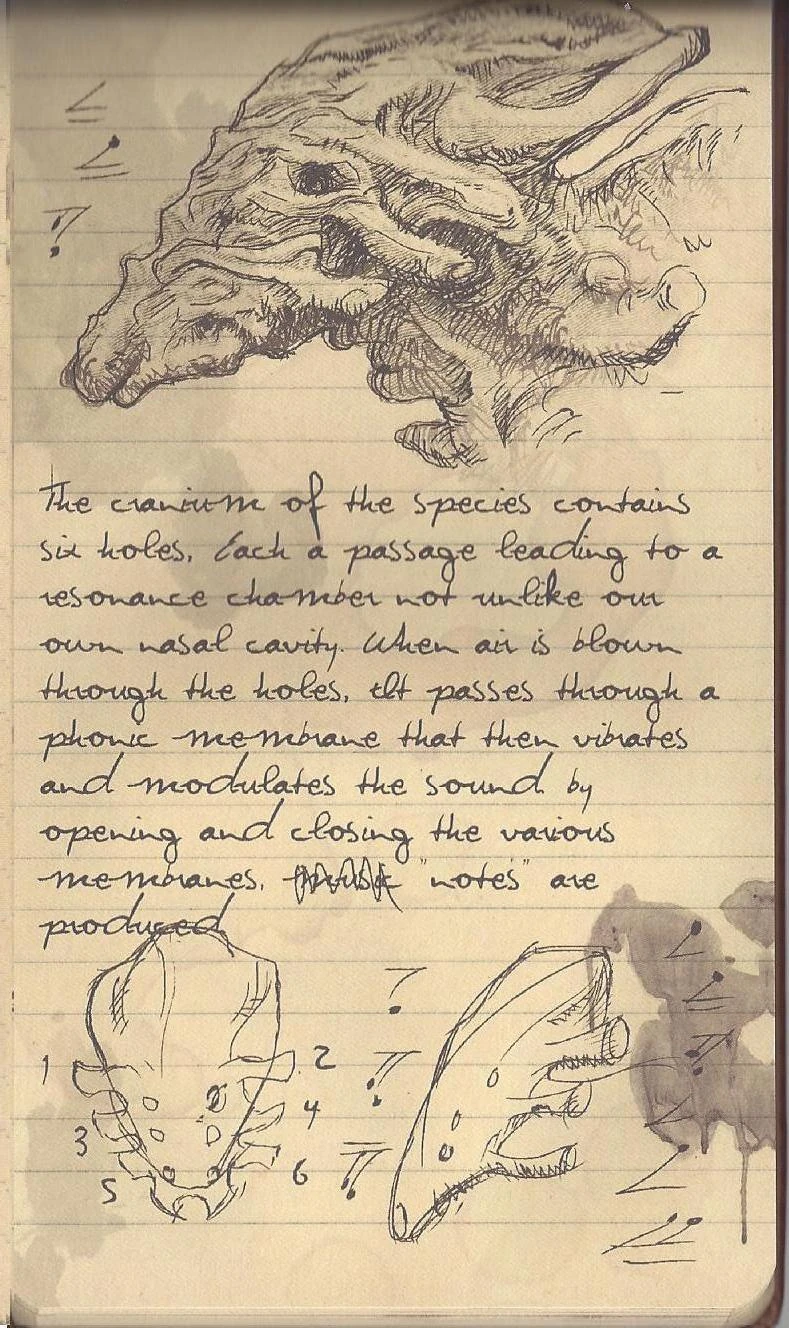 The cranium of the species contains
six holes. Each a passage leading to a
resonance chamber not unlike our
own nasal cavity. When air is blown
through the holes, it passes through a
phonic membrane that then vibrates
and modulates the sound by
opening and closing the various
membranes. "notes" are
produced
1 2
3 4
5 6